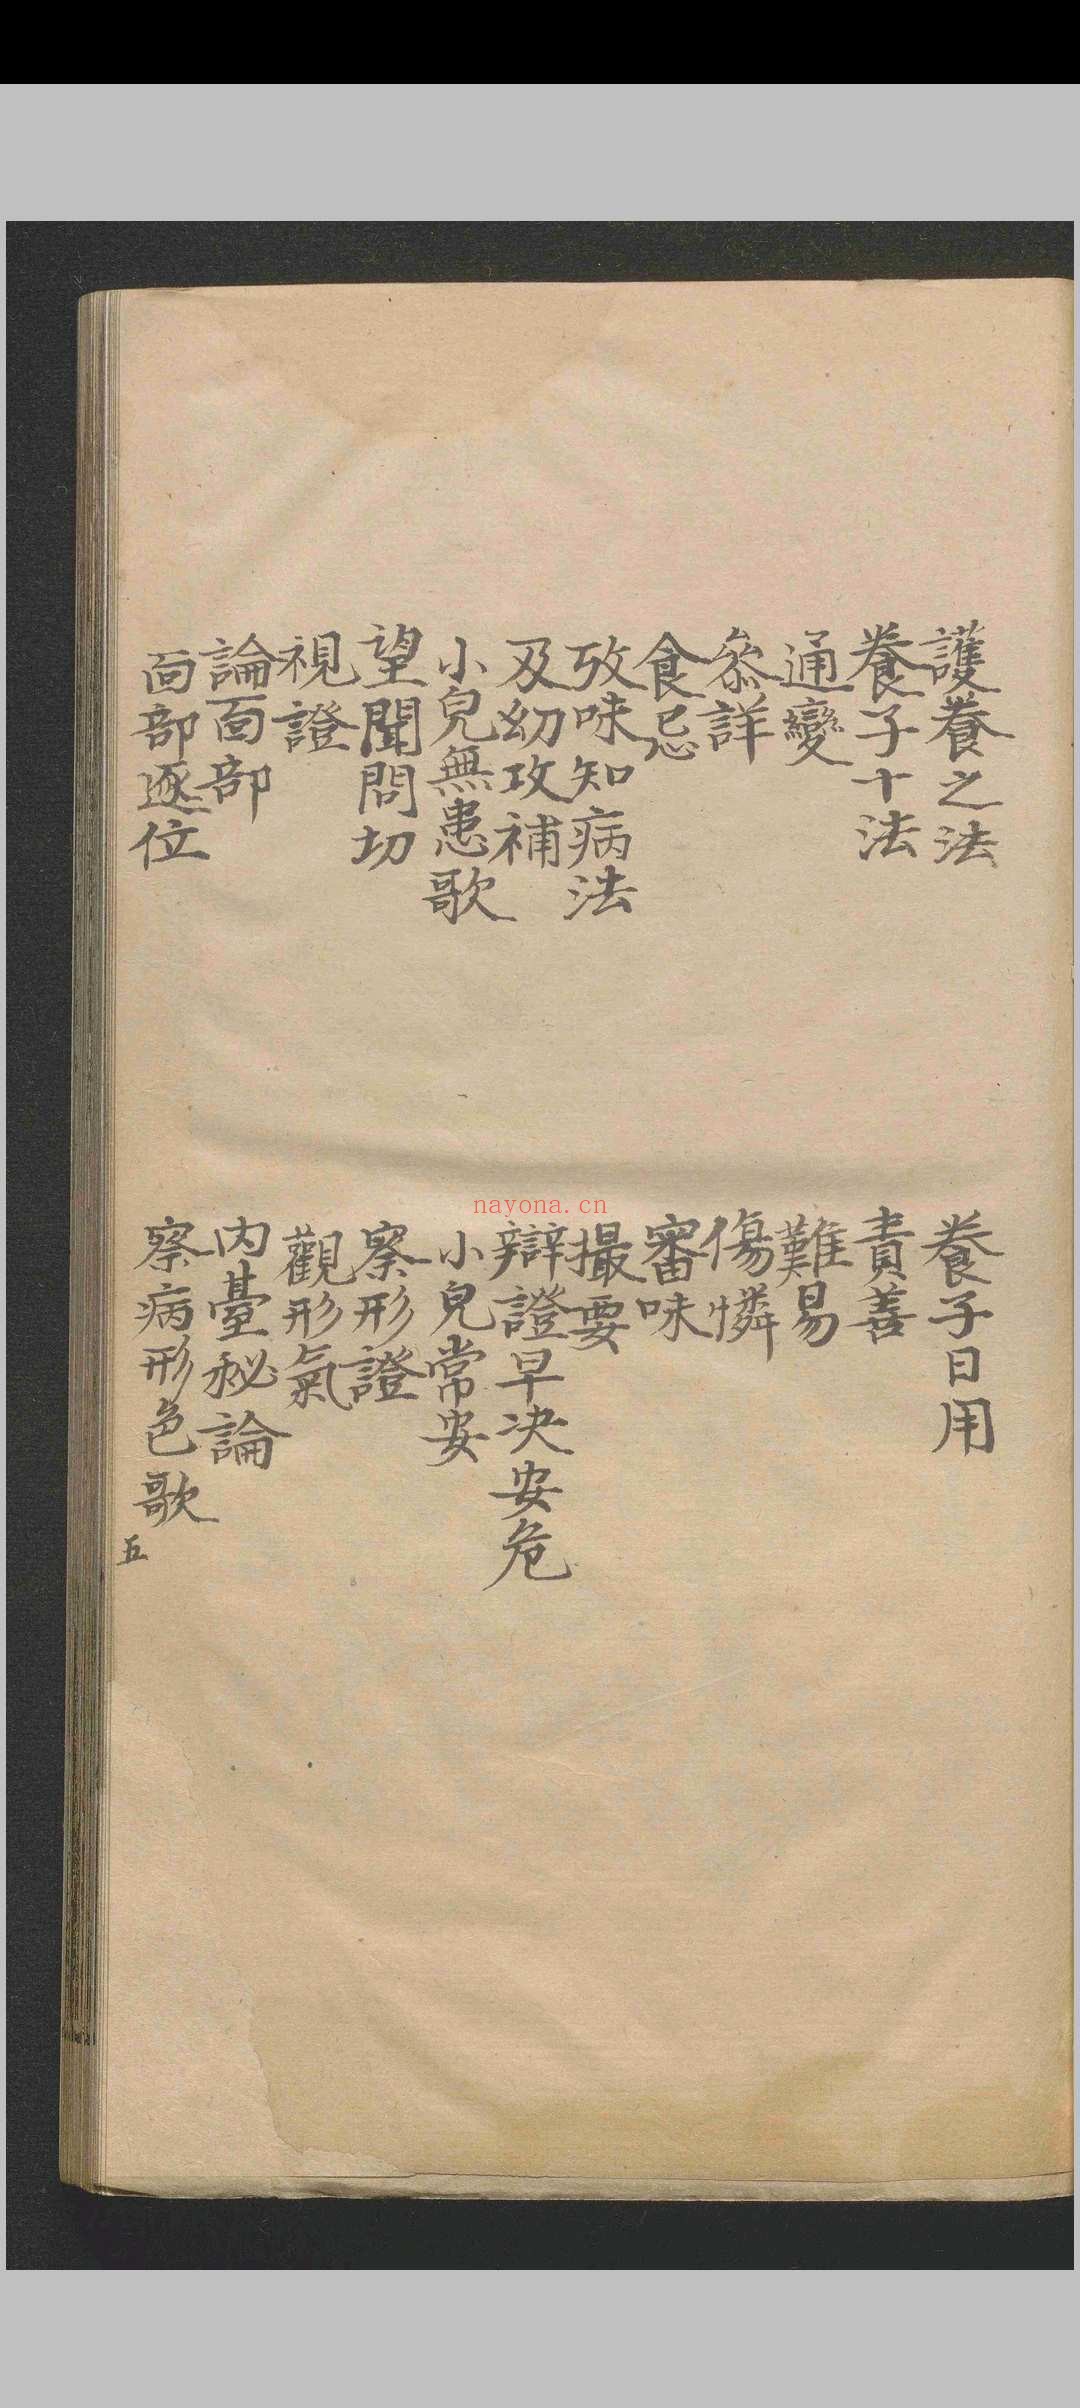 護養之法 養子日用
養子十法 責善
通變 難易
叅詳 傷憐
食忌 審味
攷味知病法 撮要
及幼攻補 辯證早决安危
小兒無患歌 小兒常安
望聞問切 察形證
視證 觀形氣
論面部 内臺秘論
面部逐位 察病形色歌
五
nayona.cn